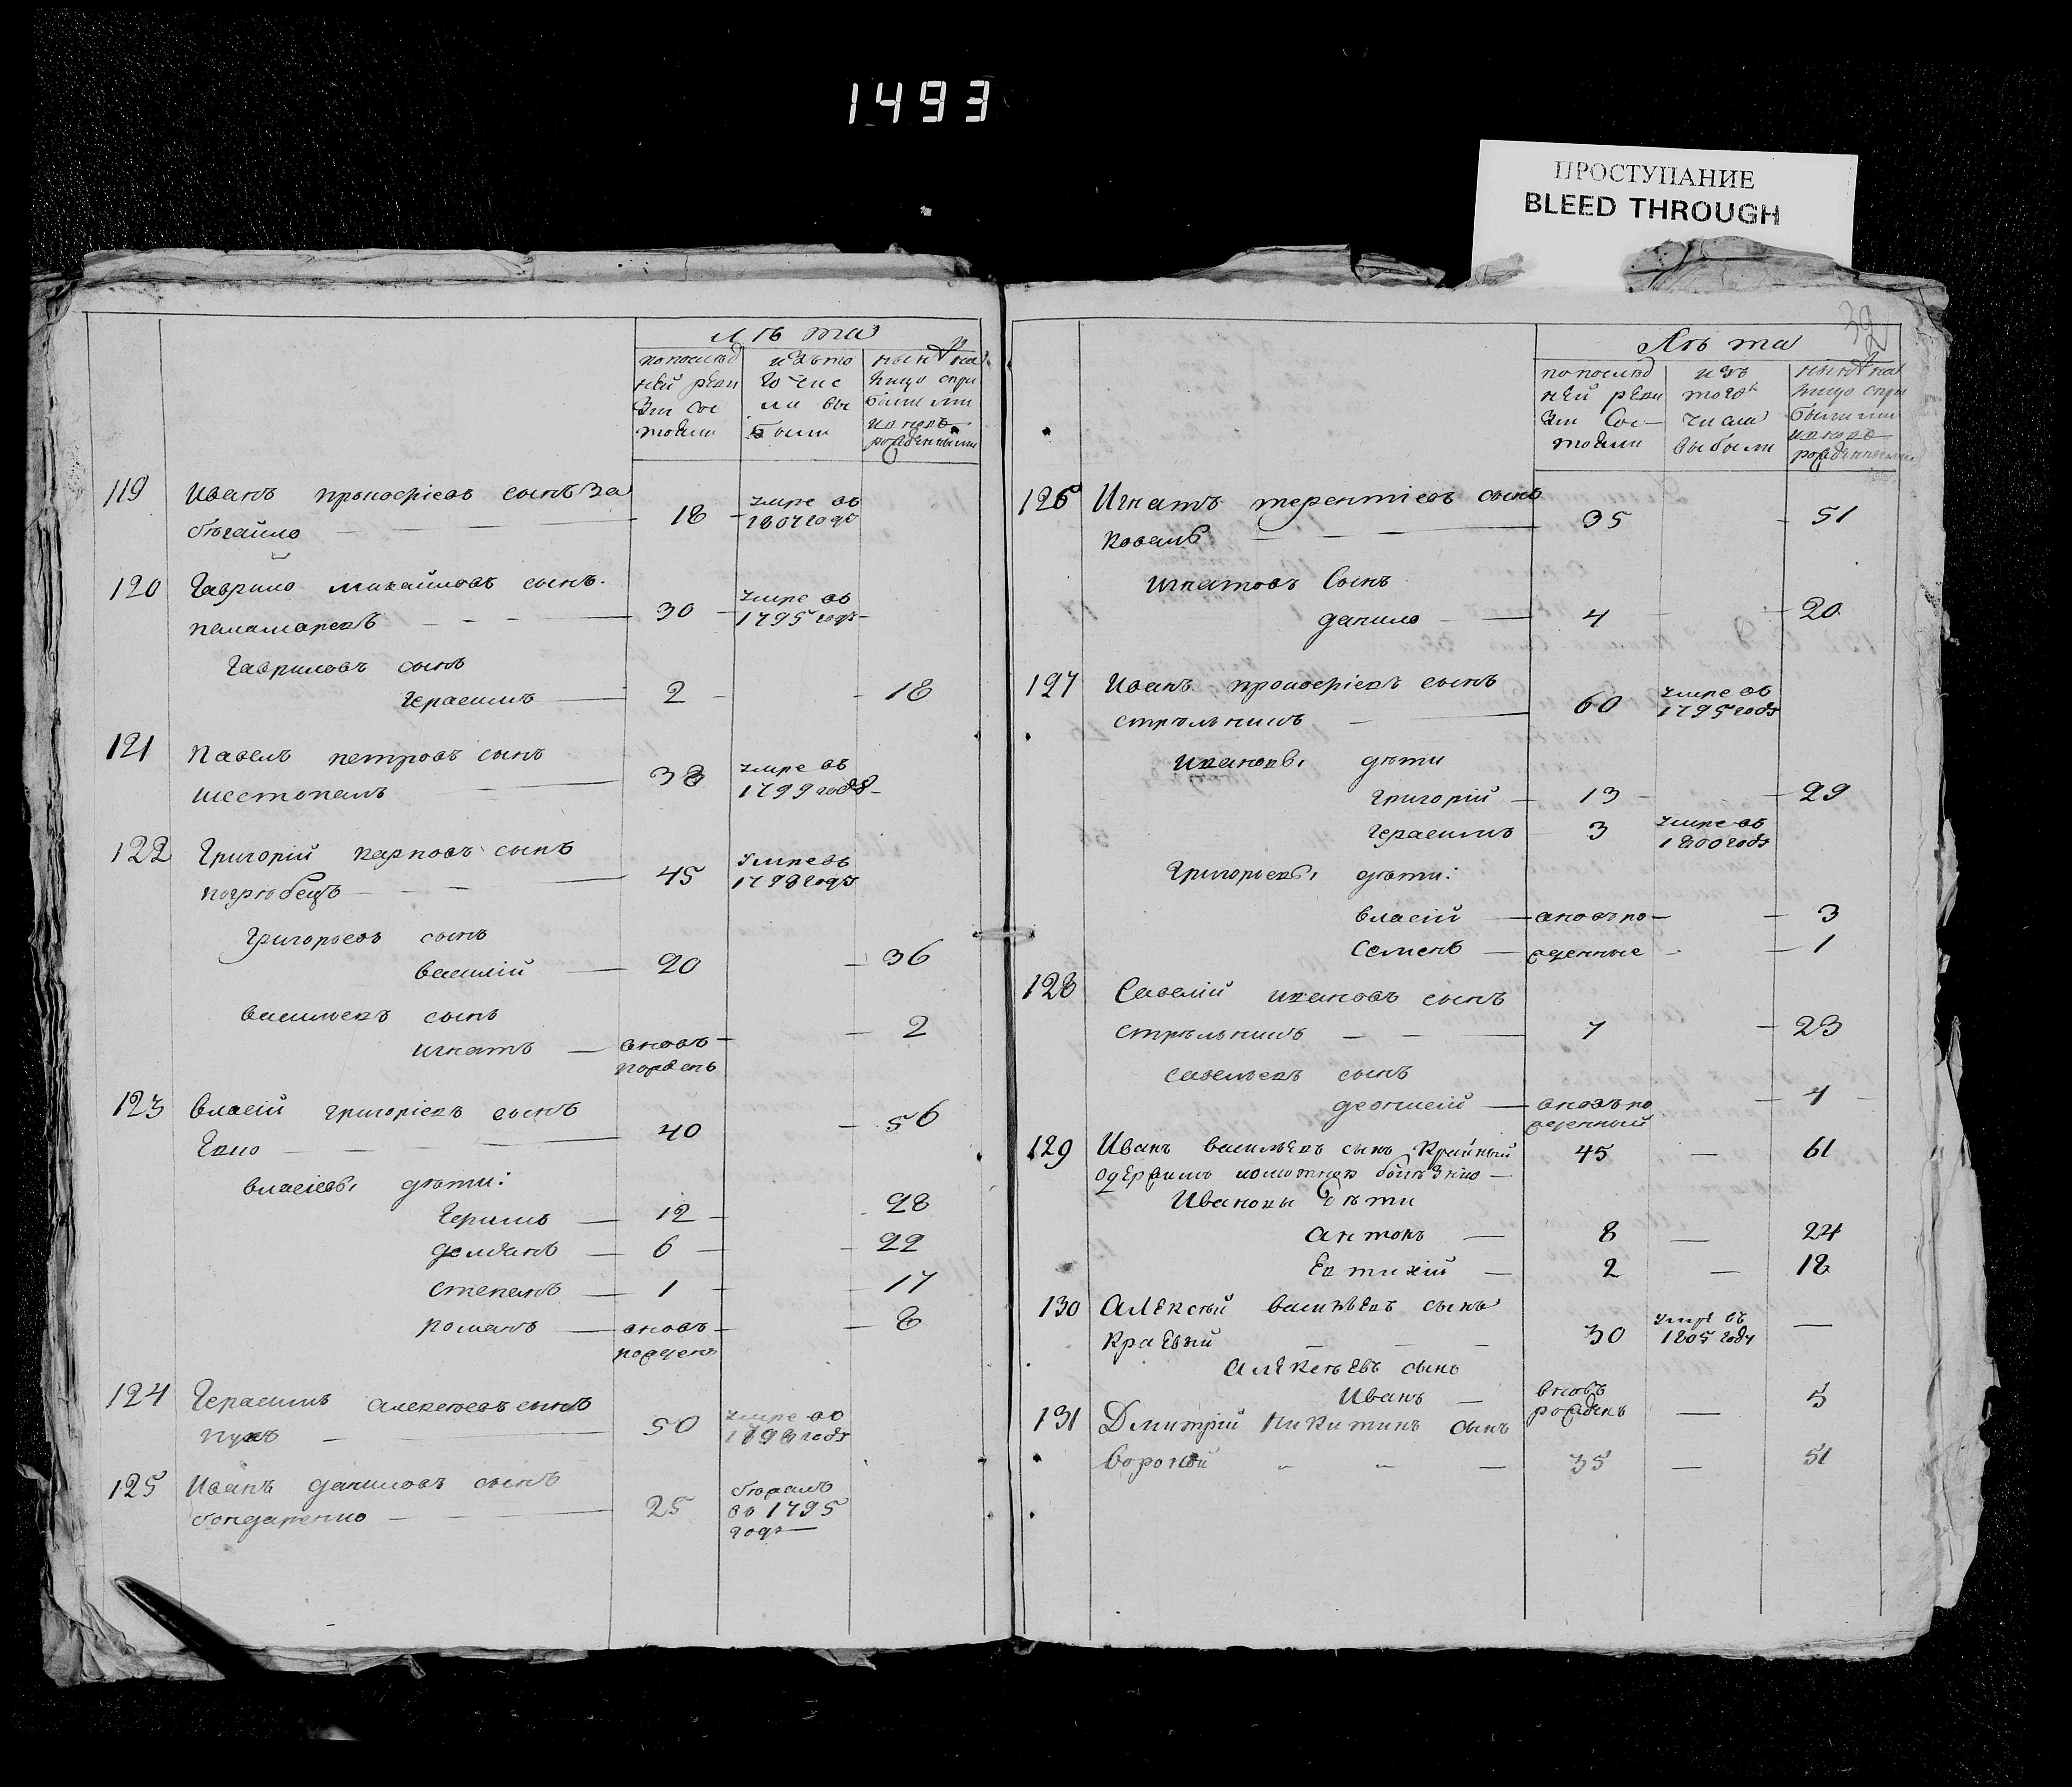 1493
ПРОСТУПАНИЕ
BLEED THROUGH
Лѣта
по послед
ней реви
зіи сос
тояли
изъ то
го чис
ла вы
были
нынѣ на
лицо съ при
былыми
и вновь
рожденными
119 Иванъ прокофіевъ сынъ За
бегайло — 18 — умре въ
1804 годѣ
120 Гаврило михайловъ сынъ
паламаревъ — 30 — умре въ
1795 годѣ
Гавриловъ сынъ
Герасимъ — 2 — 18
121 Павелъ петровъ сынъ
шестопалъ — 38 умре въ
1799 годѣ
122 Григорій карповъ сынъ
погрѣбецъ — 45 умре въ
1798 годѣ
Григорьевъ сынъ
василій — 20 — 36
васильевъ сынъ
игнатъ — вновь — 2
рожденъ
123 власій григоріевъ сынъ
— 40 — 56
власіевы дѣти:
— 12 — 28
демянъ — 6 — 22
степанъ — 1 — 17
романъ — вновь — 8
рожденъ
124 Герасимъ алексѣевъ сынъ
— 50 умре въ
годѣ
125 Иванъ даниловъ сынъ
бондаренко — 25 бѣжалъ
въ 1795
годѣ
39
Лѣта
по послед
ней реви
зіи сос
тояли
изъ
того
числа
выбыли
нынѣ на
лицо съ при
былыми
и вновь
рожденными
126 Игнатъ терентіевъ сынъ
коваль — 35 — 51
игнатовъ Сынъ
данило — 4 — 20
127 Иванъ прокофіевъ сынъ
стрельникъ — 60 умре въ
1795 годѣ
ивановы дѣти
григорій — 13 — 29
Герасимъ — 3 умре въ
1800 годѣ
Григорьевы дѣти:
власій — вновь ро — 3
семенъ — жденные — 1
128 Савелій ивановъ сынъ
стрельникъ — 7 — 23
савельевъ сынъ
— вновь ро — 4
жденный
129 Иванъ васильевъ сынъ Крайный 45 — 61
одержимъ болезнію —
Ивановы дѣти
Антонъ — 8 — 24
Евтихій — 2 — 18
130 Алексѣй васильевъ сынъ
Краевый — 30 умре въ
1805 году —
Алексѣевъ сынъ
Иванъ — вновь
рожденъ — 5
131 Дмитрий Никитинъ сынъ
вороной — 35 — 51